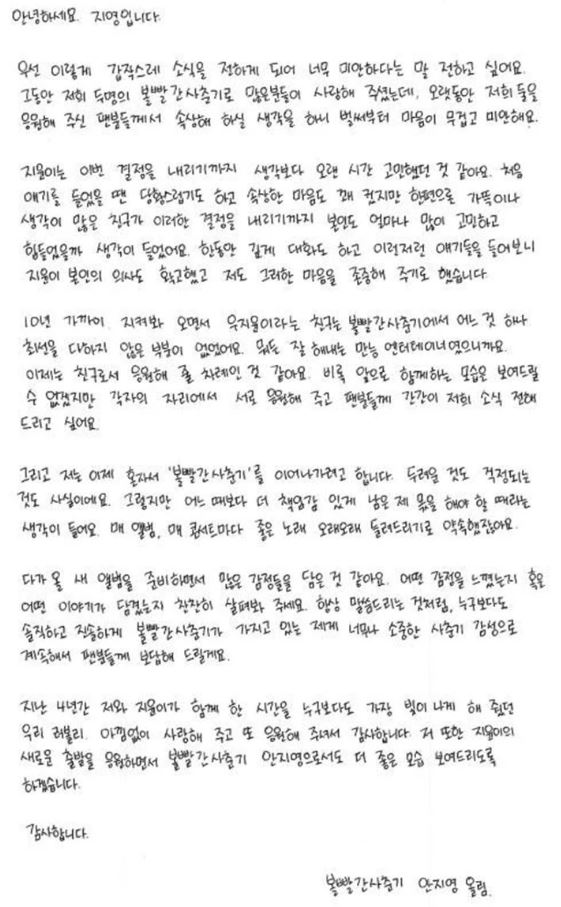 안녕하세요. 지영입니다.
우선 이렇게 갑작스레 소식을 전하게 되어 너무 미안하다는 말 전하고 싶어요.
그동안 저희 두명의 볼빨간사춘기로 많은분들이 사랑해 주셨는데, 오랫동안 저희 둘을
응원해 주신 팬분들께서 속상해 하실 생각을 하니 벌써부터 마음이 무겁고 미안해요.
지윤이는 이번 결정을 내리기까지 생각보다 오랜 시간 고민했던 것 같아요. 처음
얘기를 들었을 땐 당황스럽기도 하고 속상한 마음도 꽤 컸지만 한편으로 가뜩이나
생각이 많은 친구가 이러한 결정을 내리기까지 본인도 얼마나 많이 고민하고
힘들었을까 생각이 들었어요. 한동안 깊게 대화도 하고 이런저런 얘기들을 들어보니
지윤이 본인의 의사도 확고했고 저도 그러한 마음을 존중해 주기로 했습니다.
10년 가까이 지켜봐 오면서 우지윤이라는 친구는 볼빨간사춘기에서 어느 것 하나
최선을 다하지 않은 부분이 없었어요. 뭐든 잘 해내는 만능 엔터테이너였으니까요.
이제는 친구로서 응원해 줄 차례인 것 같아요. 비록 앞으로 함께하는 모습은 보여드릴
수 없겠지만 각자의 자리에서 서로 응원해 주고 팬분들께 간간이 저희 소식 전해
드리고 싶어요.
그리고 저는 이제 혼자서 '볼빨간사춘기'를 이어나가려고 합니다. 두려울 것도 걱정되는
것도 사실이에요. 그렇지만 어느 때보다 더 책임감 있게 남은 제 몫을 해야 할 때라는
생각이 들어요. 매 앨범, 매 콘서트마다 좋은 노래 오래오래 들려드리기로 약속했잖아요.
다가 올 새 앨범을 준비하면서 많은 감정들을 담은 것 같아요. 어떤 감정을 느꼈는지 혹은
어떤 이야기가 담겼는지 찬찬히 살펴봐 주세요. 항상 말씀드리는 것처럼, 누구보다도
솔직하고 진솔하게 볼빨간사춘기가 가지고 있는 제게 너무나 소중한 사춘기 감성으로
계속해서 팬분들께 보답해 드릴게요.
지난 4년간 저와 지윤이가 함께 한 시간을 누구보다도 가장 빛이 나게 해 줬던
우리 러볼리. 아낌없이 사랑해 주고 또 응원해 주셔서 감사합니다. 저 또한 지윤이의
새로운 출발을 응원하면서 볼빨간사춘기 안지영으로서도 더 좋은 모습 보여드리도록
하겠습니다.
감사합니다.
볼빨간사춘기 안지영 올림.